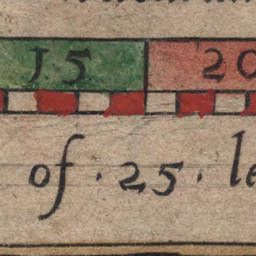 15 20
of · 25 · le